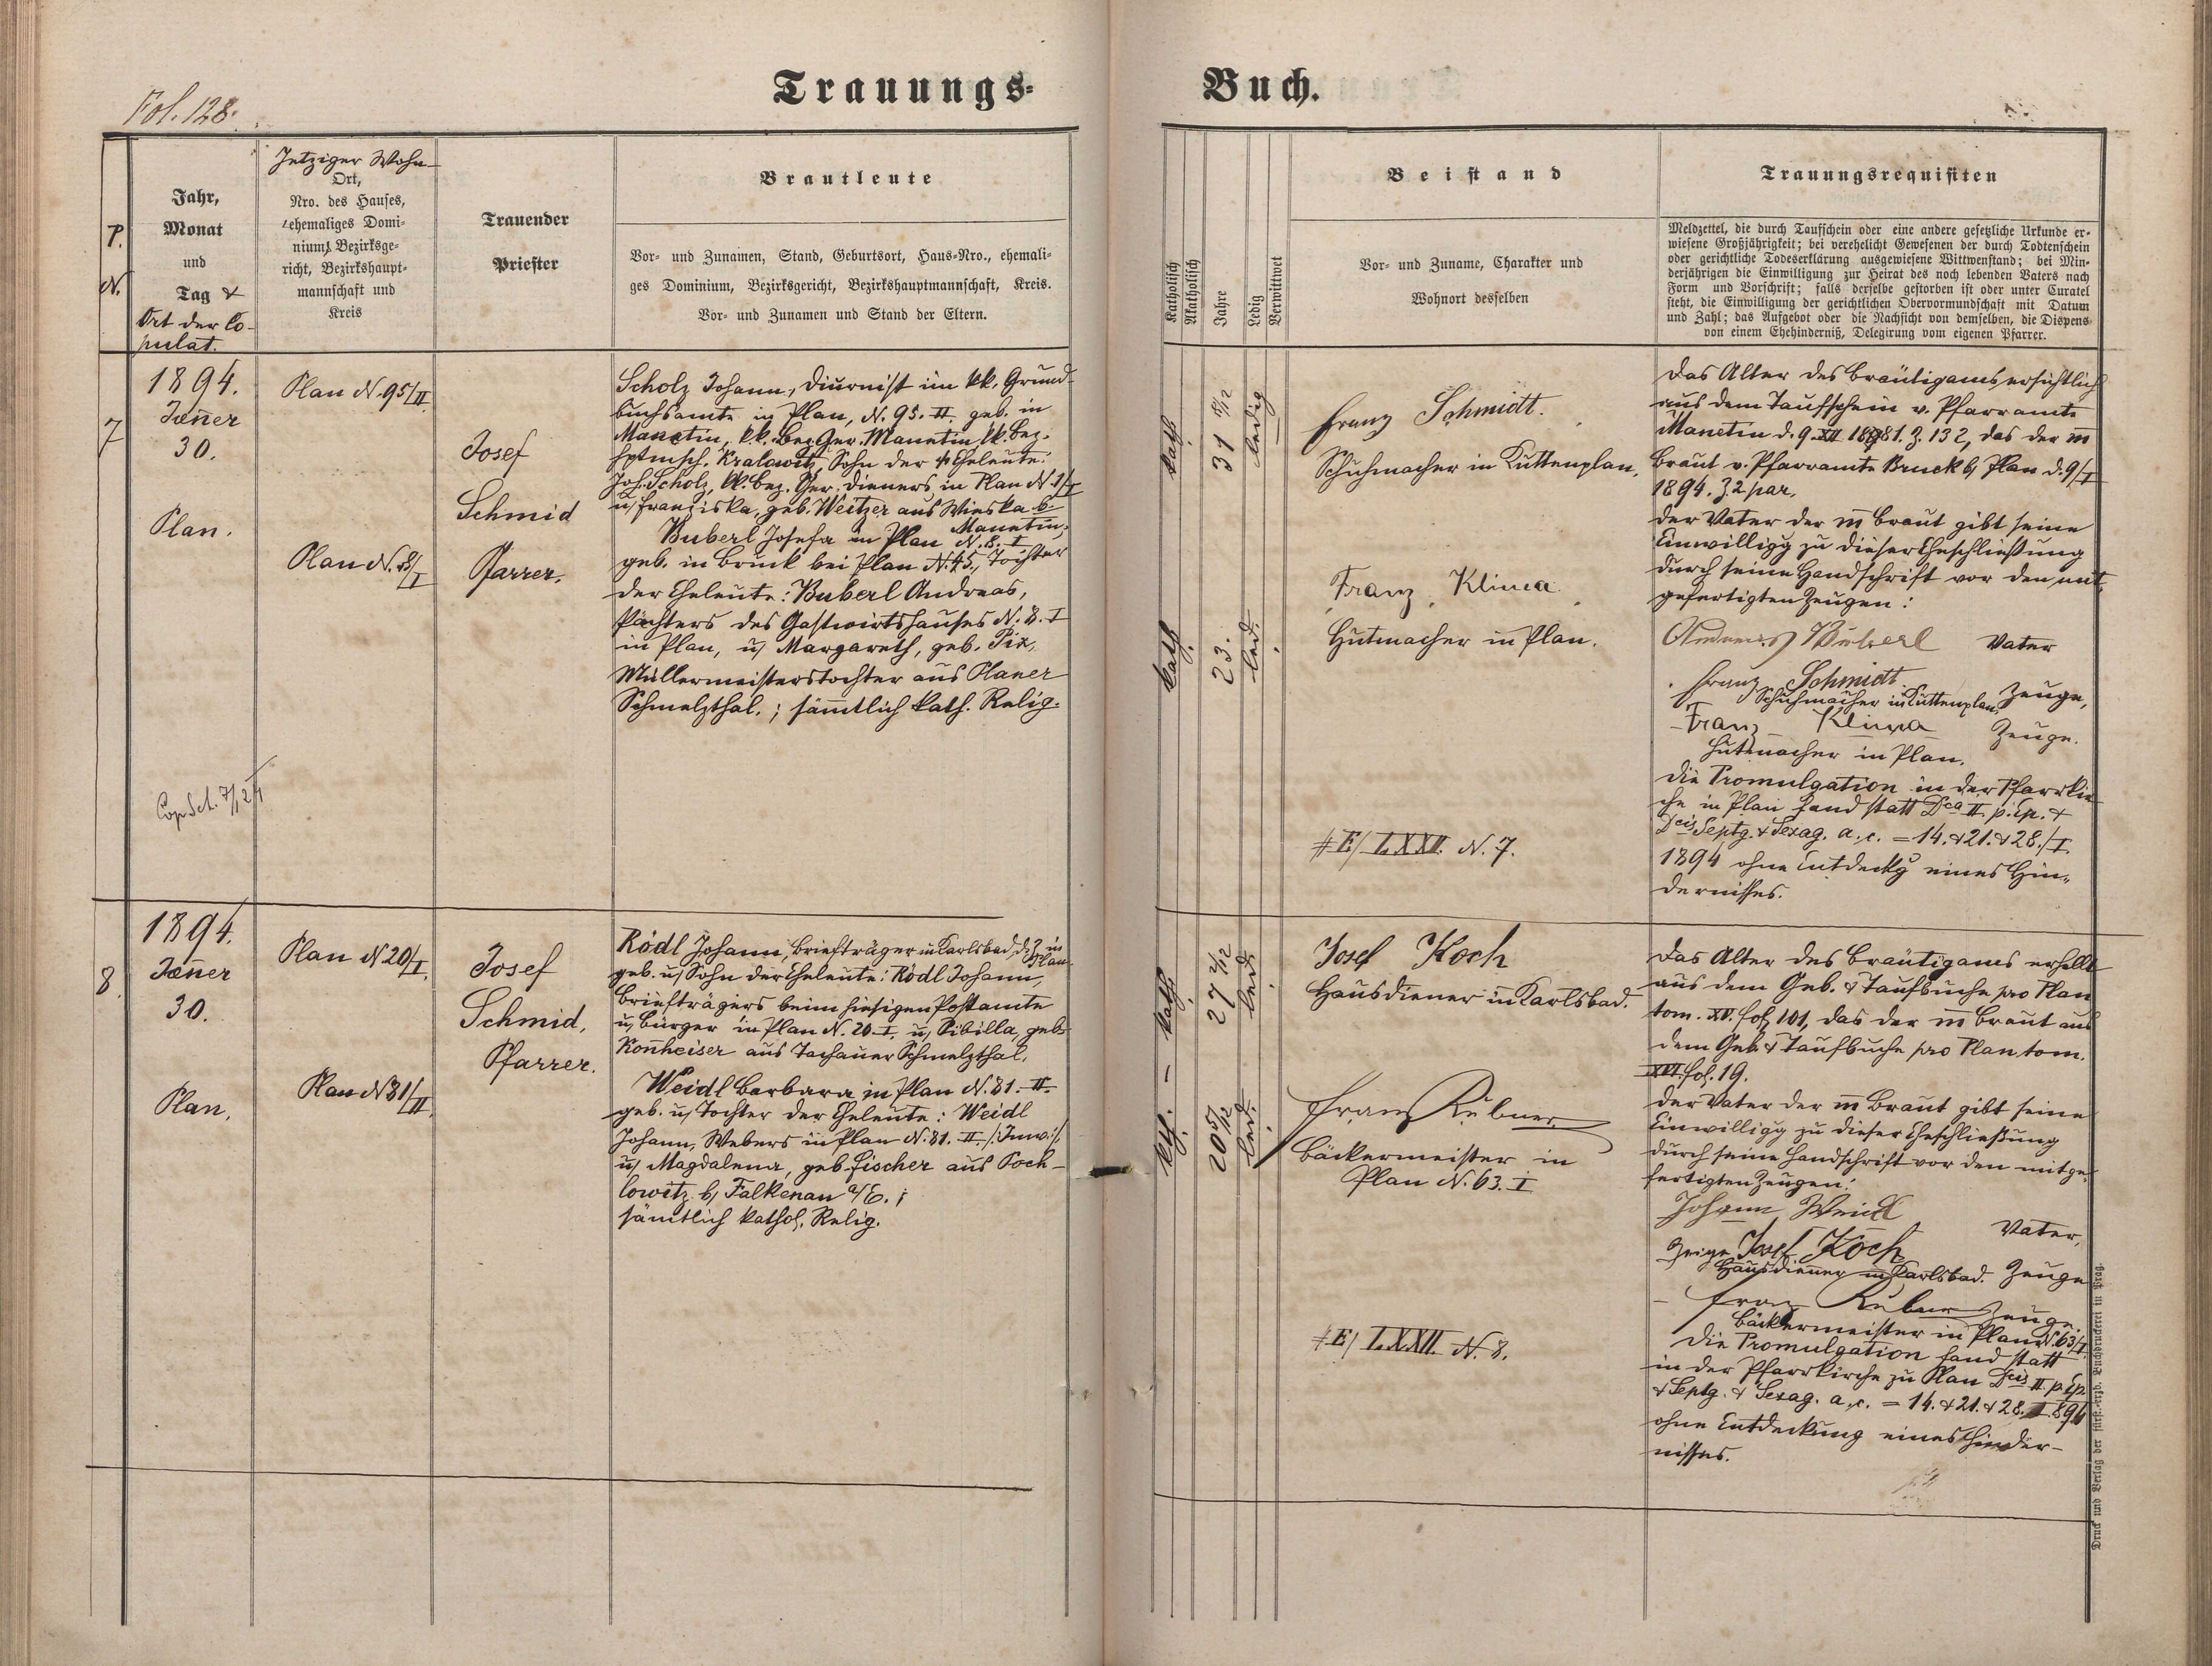 Trauungs-
Buch.
Fol. 128.
P.
N.
Jahr,
Monat
und
Tag &
Ort der Co-
pulat.
Jetziger Wohn-
Ort,
Nro. des Hauses,
ehemaliges Domi-
nium, Bezirksge-
richt, Bezirkshaupt-
mannschaft und
Kreis
Trauender
Priester
Brautleute
Vor- und Zunamen, Stand, Geburtsort, Haus-Nro., ehemali-
ges Dominium, Bezirksgericht, Bezirkshauptmannschaft, Kreis.
Vor- und Zunamen und Stand der Eltern.
Katholisch
Akatholisch
Jahre
Ledig
Verwittwet
Beistand
Vor- und Zuname, Charakter und
Wohnort desselben
Trauungsrequisiten
Meldzettel, die durch Taufschein oder eine andere gesetzliche Urkunde er-
wiesene Großjährigkeit; bei verehelicht Gewesenen der durch Todtenschein
oder gerichtliche Todeserklärung ausgewiesene Wittwenstand; bei Min-
derjährigen die Einwilligung zur Heirat des noch lebenden Vaters nach
Form und Vorschrift; falls derselbe gestorben ist oder unter Curatel
steht, die Einwilligung der gerichtlichen Obervormundschaft mit Datum
und Zahl; das Aufgebot oder die Nachsicht von demselben, die Dispens
von einem Ehehinderniß, Delegirung vom eigenen Pfarrer.
7
1894.
Jänner
30.
Plan.
Plan N. 95/II
Plan N. 8/I
Josef
Schmid
Pfarrer.
Scholz Johann, Diurnist im kk. Grund-
buchsamte in Plan, N. 95. II. geb. in
Manetin, kk. Bez. Ger. Manetin, kk. Bez.
hptmsch. Kralowitz, Sohn der Eheleute:
Joh. Scholz, kk. Bez. Ger. Dieners in Plan N. 1/I
u. Franziska, geb. Weitzer aus Wieska b.
Manetin;
Buberl Josefa in Plan N. 8. I
geb. in Bruck bei Plan N. 45., Tochter
der Eheleute: Buberl Andreas,
Pächters des Gastwirtshauses N. 8. I
in Plan, u. Margareth, geb. Pix,
Müllermeisterstochter aus Planer
Schmelzthal.; sämmtlich kath. Relig.
kath.
31 /12
ledig
kath.
23.
led.
Franz Schmidt.
Schuhmacher in Kuttenplan,
Franz Klima
Hutmacher in Plan.
# E/ LXXII. N. 7.
Das Alter des Bräutigams, ersichtlich
aus dem Taufschein v. Pfarramte
Manetin d. 9. XII 1881. Z. 132, das der m
Braut v. Pfarramte Bruck b. Plan d. 9/I
1894. Z. 2 par.
Der Vater der m Braut gibt seine
Einwilligg zu dieser Eheschließung
durch seine Handschrift vor den mit-
gefertigten Zeugen:
Andreas Buberl Vater
Franz Schmidt Zeuge,
Schuhmacher in Kuttenplan,
Franz Klima Zeuge.
Hutmacher in Plan.
Die Promulgation in der Pfarrkir-
che in Plan fand statt Dca II. p. Ep. &
Dcis Septg. & Sexag. a. c. = 14. & 21. & 28./I.
1894 ohne Entdeckg eines Hin-
dernisses.
8
1894.
Jänner
30.
Plan.
Plan N. 20/I.
Plan N 81/II
Josef
Schmid,
Pfarrer.
Rödl Johann, Briefträger in Karlsbad, d. Z. in Plan
geb. u. Sohn der Eheleute: Rödl Johann,
Briefträgers beim hiesigen Postamte
u. Bürger in Plan N. 20. I, u. Sibilla, geb.
Konheiser aus Tachauer Schmelzthal.
Weidl Barbara in Plan N. 81. II.
geb. u. Tochter der Eheleute: Weidl
Johann, Webers in Plan N. 81. II. /: Inw :/
u. Magdalena, geb. Fischer aus Poch-
lowitz b. Falkenau a/E.;
sämtlich kathol. Relig.
kath.
27 2/12
led.
20 5/12
led.
Josef Koch
Hausdiener in Karlsbad.
Franz Rubner
Bäckermeister in
Plan N. 63. I
# E/ LXXII. N. 8.
Das Alter des Bräutigams erhellt
aus dem Geb. & Taufbuche pro Plan
tom. XV. fol. 101, das der m Braut aus
dem Geb. & Taufbuche pro Plan tom.
XVI. fol. 19.
Der Vater der m Braut gibt seine
Einwilligg zu dieser Eheschließung
durch seine Handschrift vor den mitge-
fertigten Zeugen:
Johann Weidl
Vater,
Zeige Josef Koch
Hausdiener in Karlsbad. Zeuge
Franz Rubner Zeuge.
Bäckermeister in Plan N. 63/I.
Die Promulgation fand statt
in der Pfarrkirche zu Plan Dcis II. p. Ep.
& Septg. & Sexag. a. c. = 14. & 21. & 28. I. 894
ohne Entdeckung eines Hinder-
nisses.
Druck und Verlag der fürst.-erzb. Buchdruckerei in Prag.